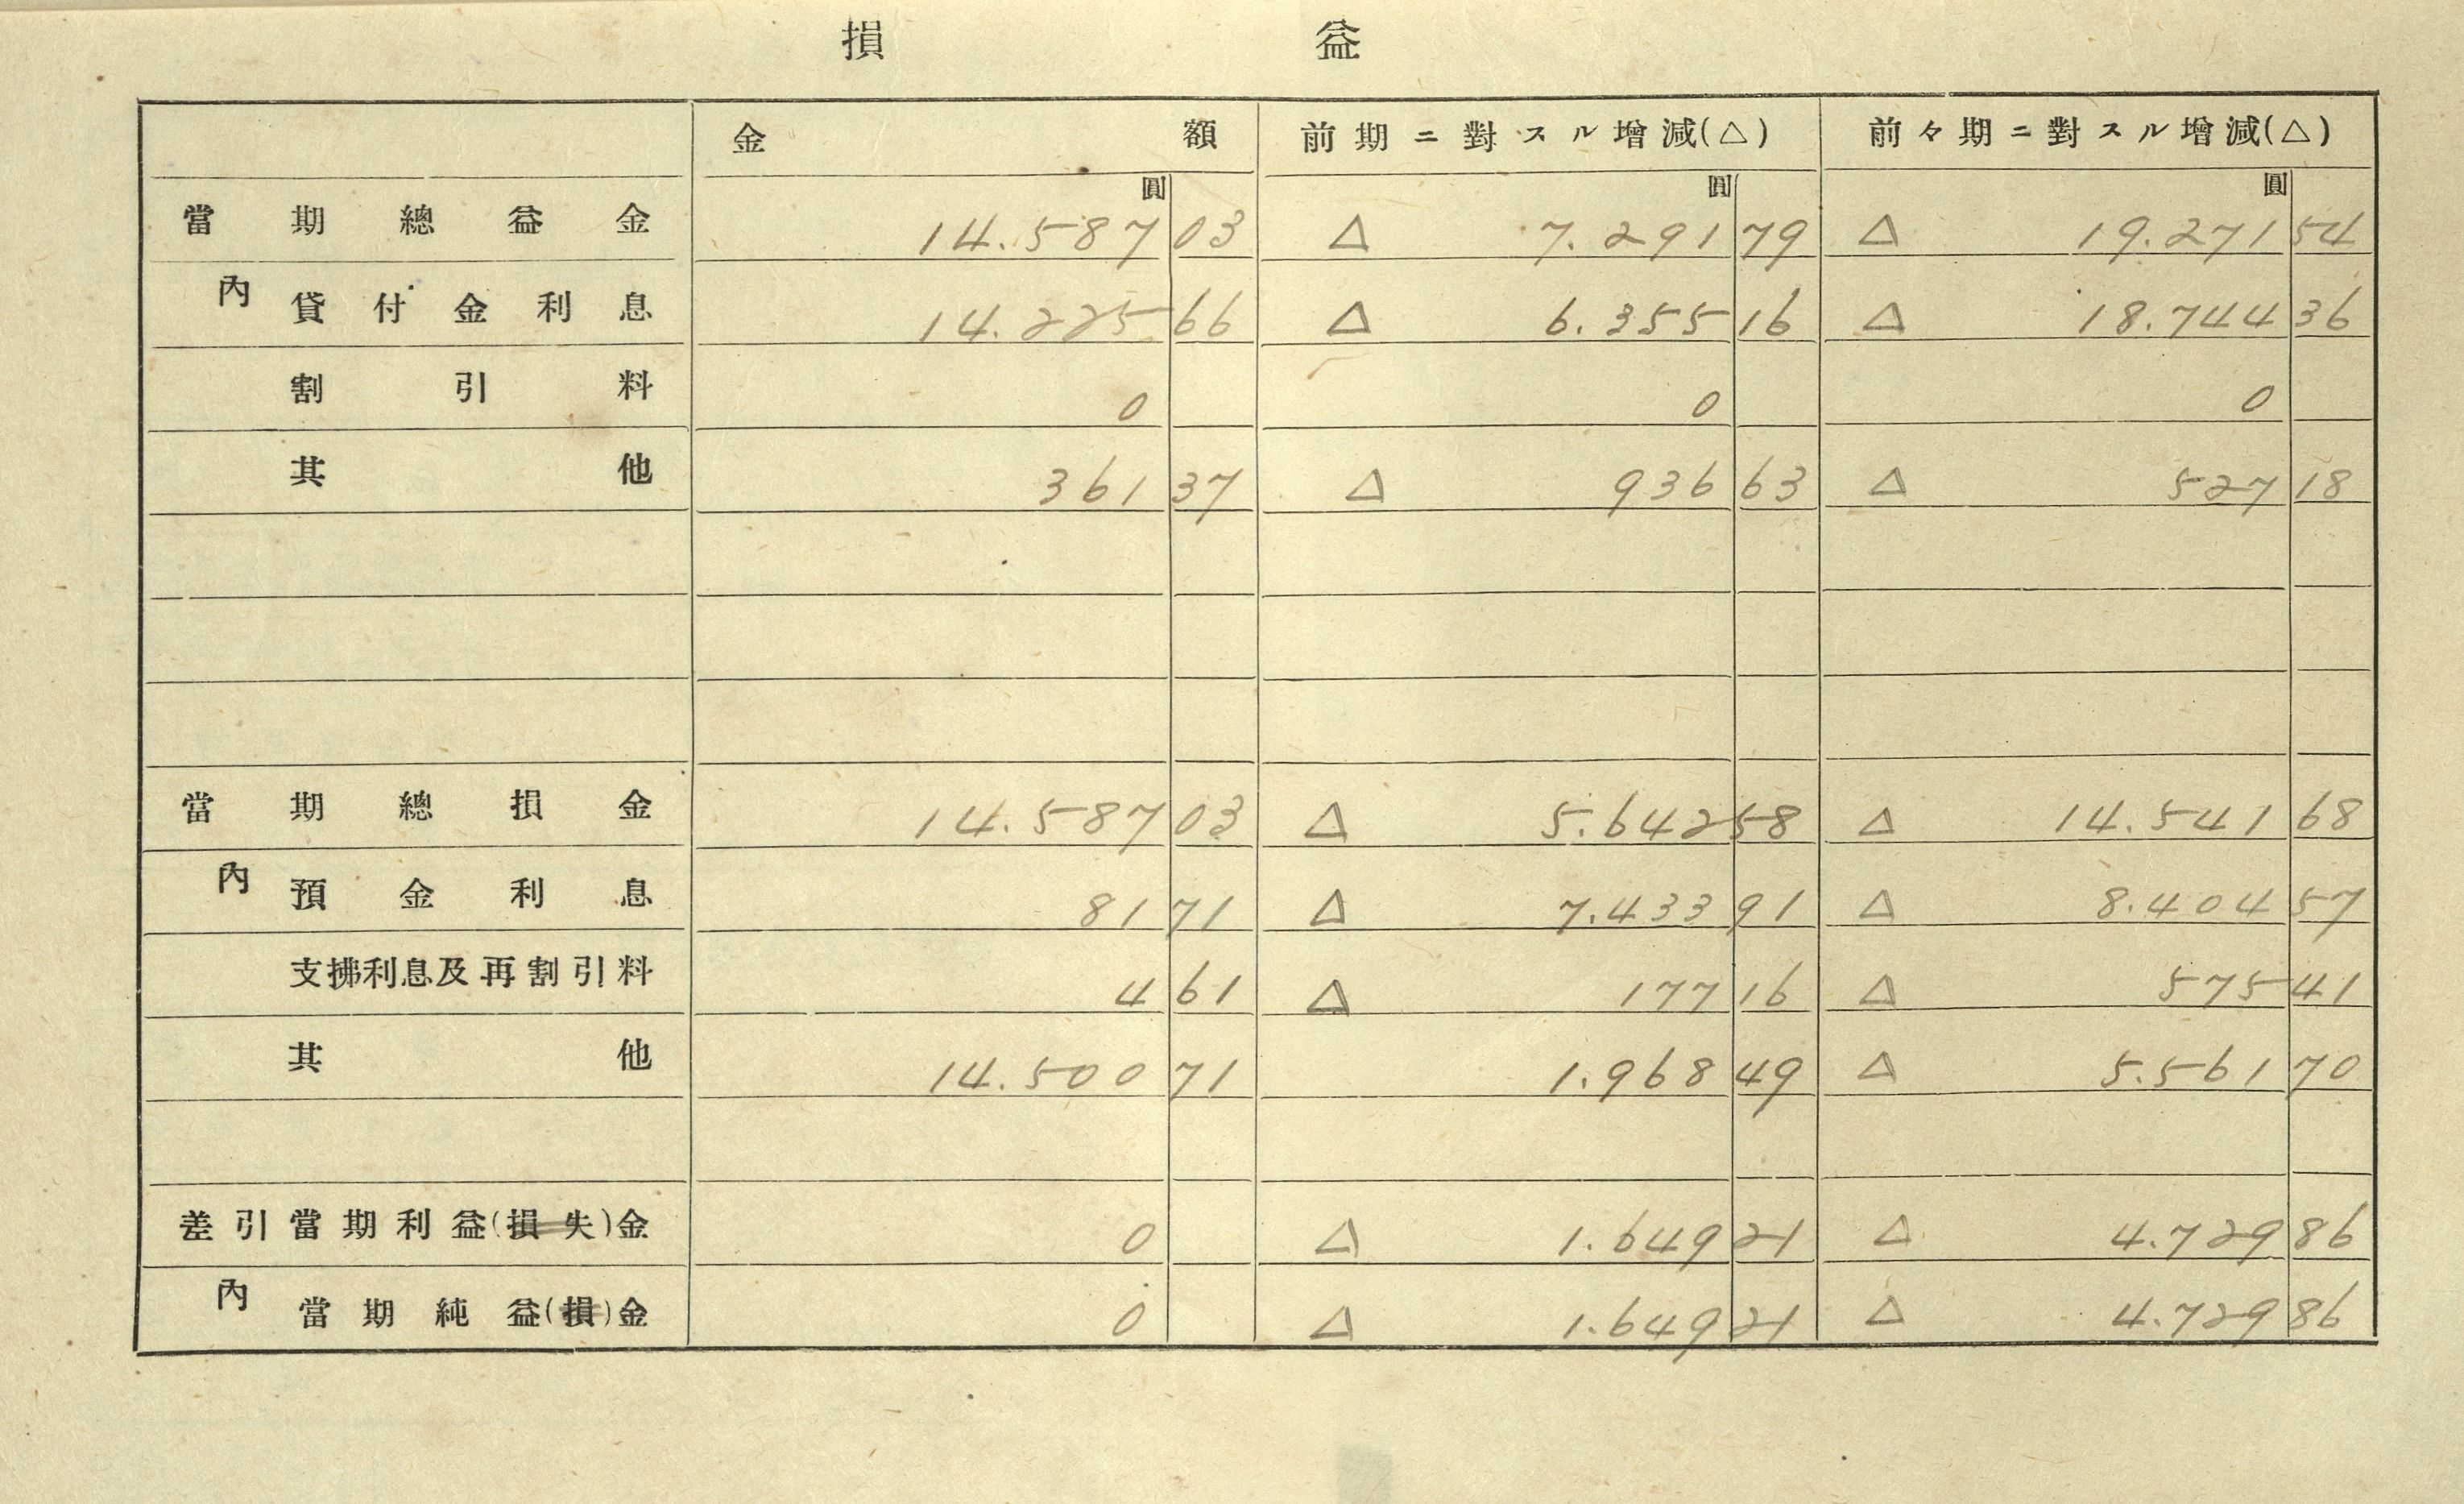 損 益
金額 前期ニ對スル增減(△) 前々期ニ對スル增減(△)
圓 圓 圓
當期總益金 14.587 03 △ 7.291 79 △ 19.271 54
內 貸付金利息 14.225 66 △ 6.355 16 △ 18.744 36
割引料 0 0 0
其他 361 37 △ 936 63 △ 527 18
當期總損金 14.587 03 △ 5.642 58 △ 14.541 68
內 預金利息 81 71 △ 7.433 91 △ 8.404 57
支拂利息及再割引料 4 61 △ 177 16 △ 575 41
其他 14.500 71 1.968 49 △ 5.561 70
差引當期利益(損失)金 0 △ 1.649 21 △ 4.729 86
內 當期純益(損)金 0 △ 1.649 21 △ 4.729 86